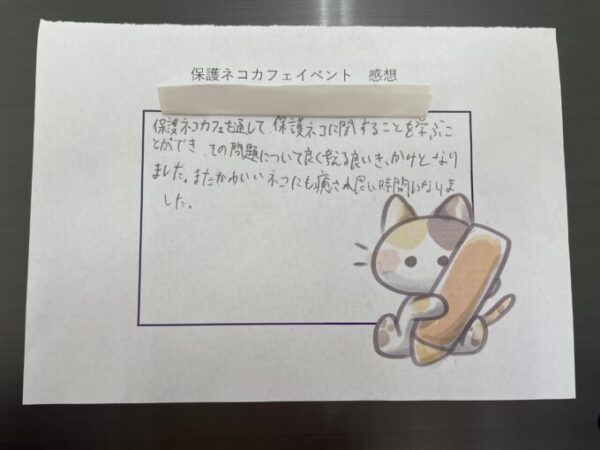 保護ネコカフェイベント 感想
保護ネコカフェを通して、保護ネコに関することを学ぶこ
とができ、その問題について良く考える良いきっかけとなり
ました。またかわいいネコにも癒され良い時間になりま
した。